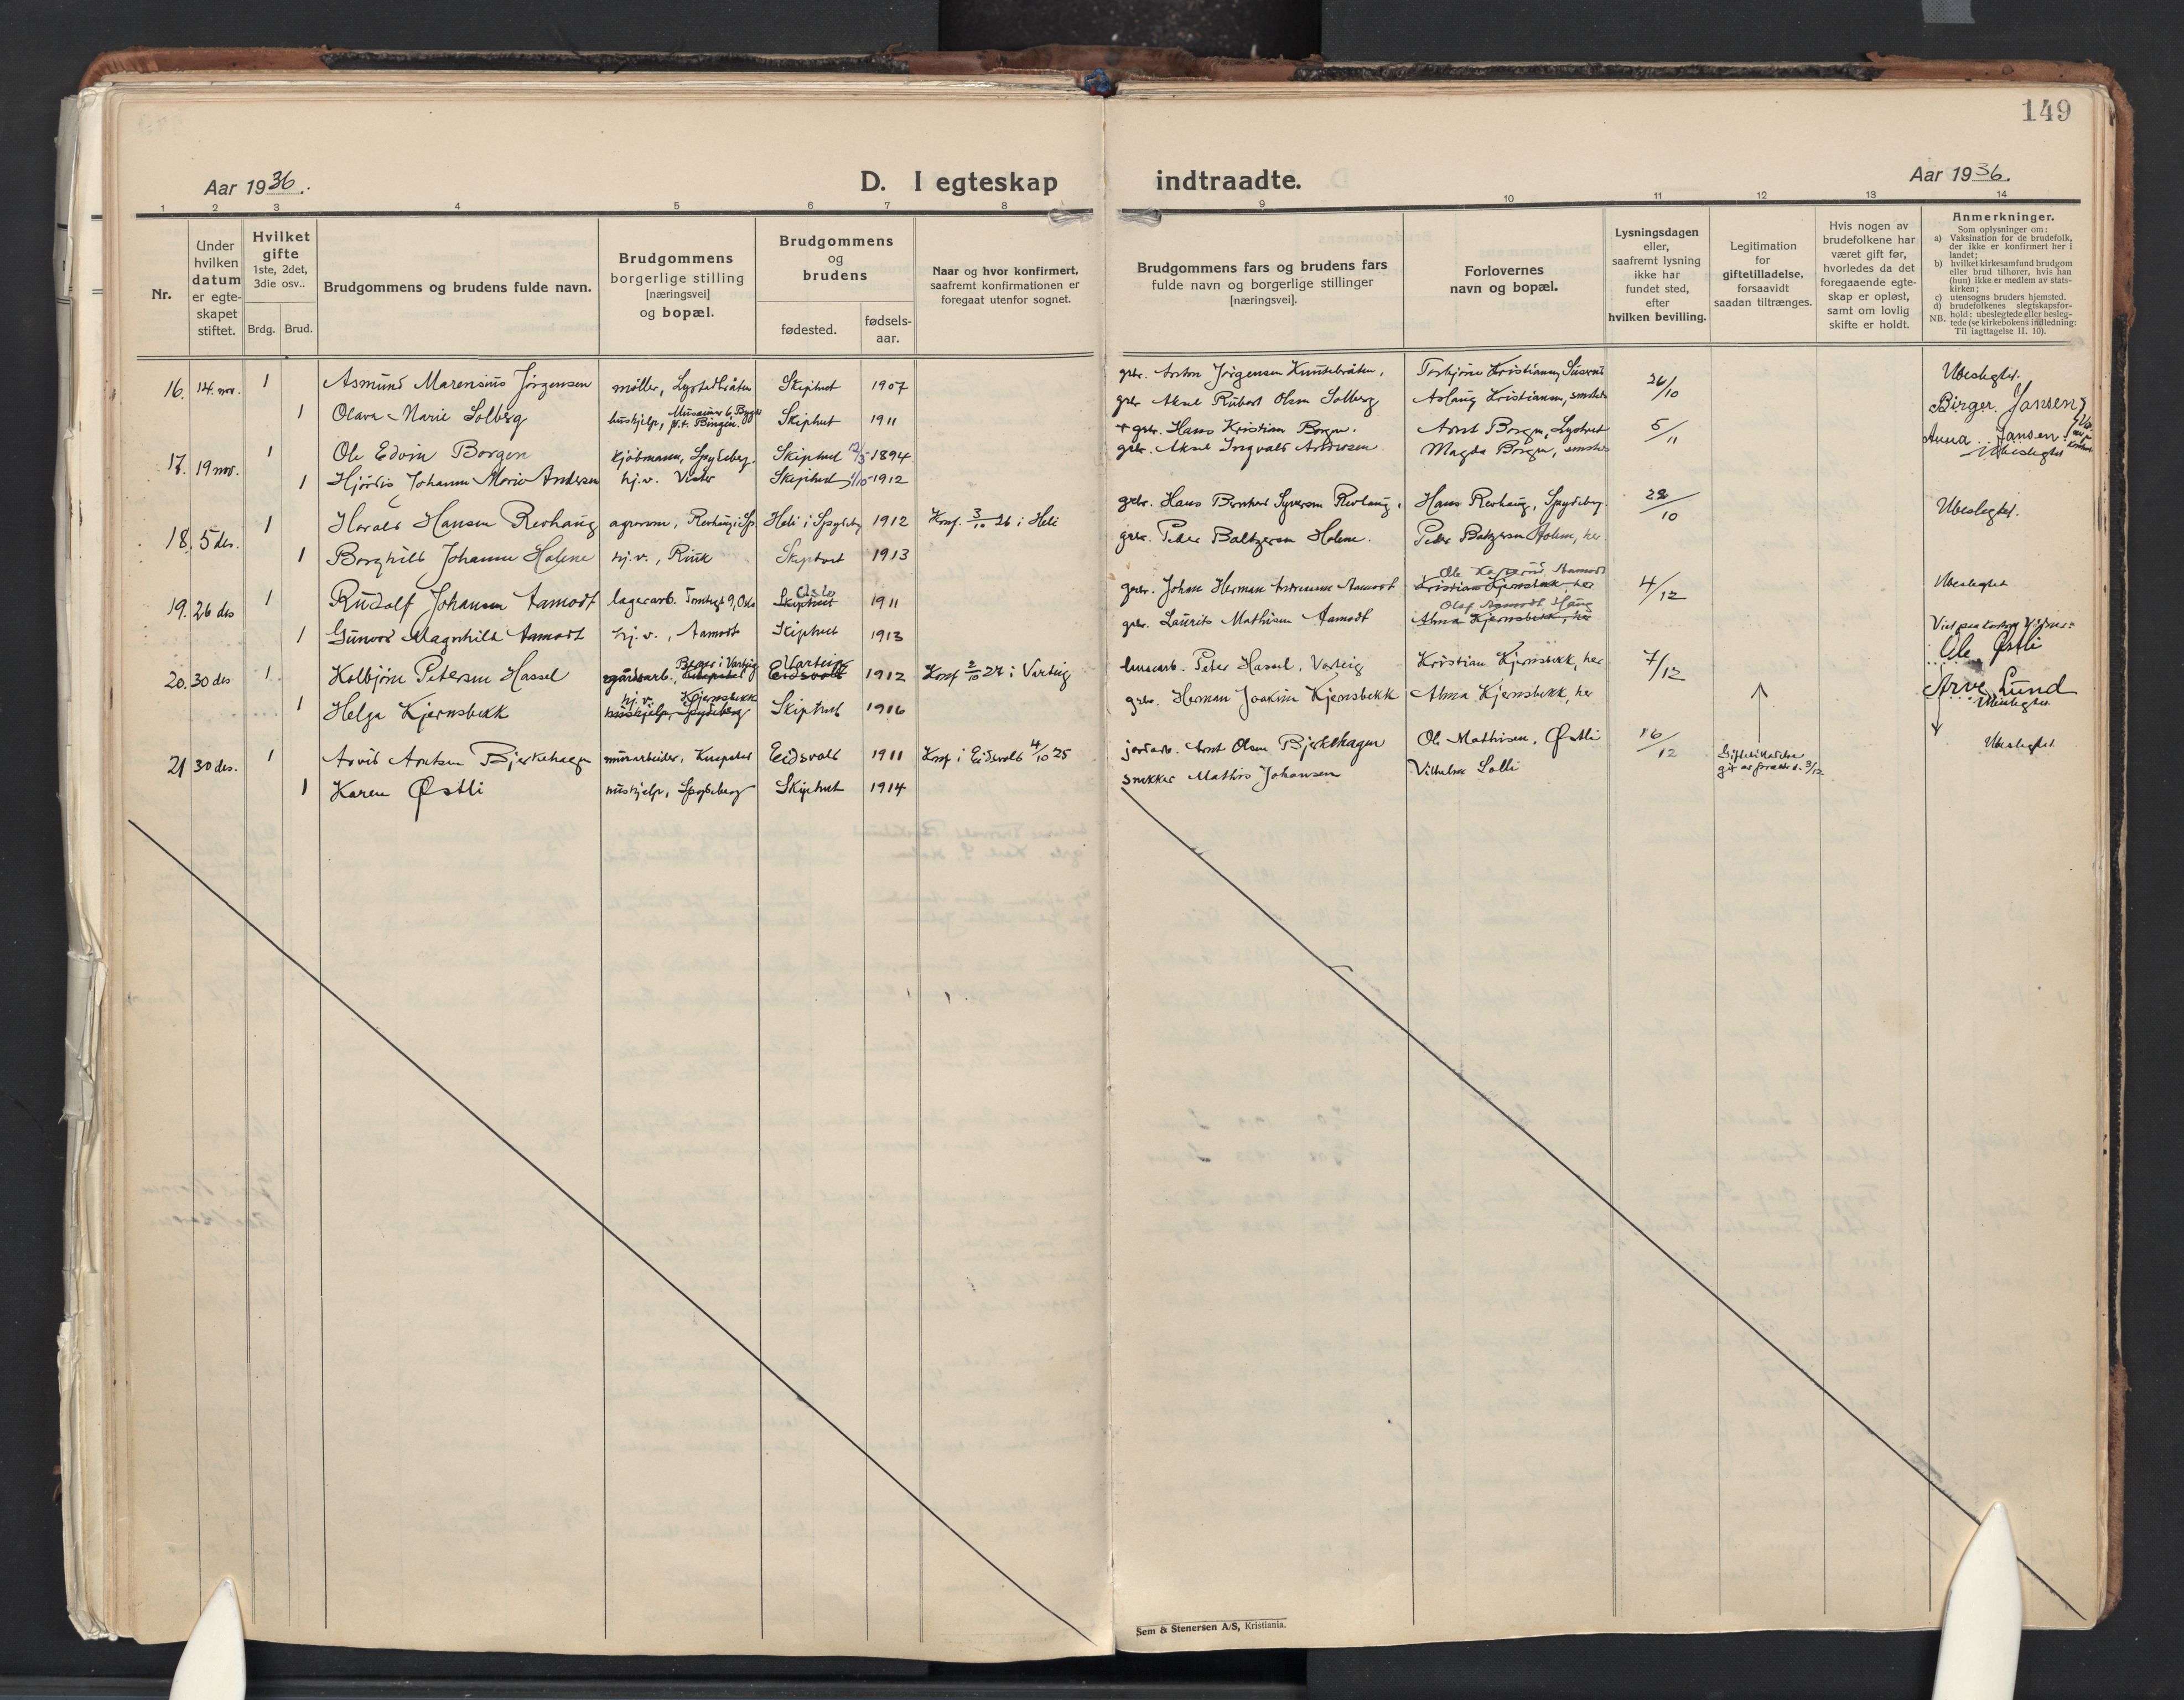 149
Aar 1936.
D. I egteskap indtraadte.
Aar 1936.
1 2 3 4 5 6 7 8 9 10 11 12 13 14
Nr.
Under hvilken datum er egte-skapet stiftet.
Hvilket gifte 1ste, 2det, 3die osv..
Brdg. Brud.
Brudgommens og brudens fulde navn.
Brudgommens borgerlige stilling [næringsvei] og bopæl.
Brudgommens og brudens
fødested.
fødsels-aar.
Naar og hvor konfirmert, saafremt konfirmationen er foregaat utenfor sognet.
Brudgommens fars og brudens fars fulde navn og borgerlige stillinger [næringsvei].
Forlovernes navn og bopæl.
Lysningsdagen eller, saafremt lysning ikke har fundet sted, efter hvilken bevilling.
Legitimation for giftetilladelse, forsaavidt saadan tiltrænges.
Hvis nogen av brudefolkene har været gift før, hvorledes da det foregaaende egte-skap er opløst, samt om lovlig skifte er holdt.
Anmerkninger.
Som oplysninger om:
a) Vaksination for de brudefolk, der ikke er konfirmert her i landet;
b) hvilket kirkesamfund brudgom eller brud tilhører, hvis han (hun) ikke er medlem av stats-kirken;
c) utensogns bruders hjemsted.
d) brudefolkenes slegtskapsfor-hold: ubeslegtede eller besleg-tede (se kirkebokens indledning: Til iagttagelse II. 10).
NB.
16. 14. nov. 1 Asmund Marensius Jörgensen möller, Skiptvet 1907 gbr. Anton Jörgensen 26/10 Ubeslegtet.
1 Olava Marie Solberg hushjelp, Skiptvet 1911 gbr Aksel Robert Olsen Solberg Aslaug Kristiansen, smsteds Birger Jansen
17. 19 nov. 1 Ole Edvin Borgen kjöbmann, Spydeberg. Skiptvet 12/3-1894 + gbr. Hans Kristian Borgen. Arnt Borgen, 5/11 Anna Jansen.
1 Hjördis Johanne Marie Andersen hj.v. Vister Skiptvet 1912 gbr. Aksel Ingvald Andersen Magda Borgen, smsteds Ubeslegtet
18. 5 des. 1 Harald Hansen Revhaug agronom, Revhaug i Sp. Heli i Spydeberg 1912 Konf. 3/10 26 i Heli gbr. Hans Revhaug, Hans Revhaug, Spydeberg 28/10 Ubeslegtet.
1 Borghild Johanne Holene hj.v., Skiptvet 1913 gbr. Peder Baltzersen Holene. Peder Baltzersen Holene, her
19. 26 des 1 Rudolf Johansen Aamodt lagerarb. Oslo Skiptvet Oslo 1911 gbr. Johan Herman Aamodt Kristian Kjernsbekk, her Ole Aamodt 4/12 Ubeslegtet
1 Gunvor Magnhild Aamodt hj.v., Aamodt Skiptvet 1913 gbr. Laurits Mathisen Aamodt Alma Kjernsbekk, her Olaf Aamodt, Haug
20. 30 des 1 Kolbjörn Petersen Hassel gårdsarb. i Varteig Eidsvold Varteig 1912 Konf 2/10 27 i Varteig Peter Hassel, Varteig Kristian Kjernsbekk, her 7/12 Ole Østli
1 Helga Kjernsbekk hushjelp, Spydeberg hj.v. Kjernsbekk Skiptvet 1916 gbr. Herman Joakim Kjernsbekk Alma Kjernsbekk, her Arve Lund
Ubeslegtet
21 30 des. 1 Arvid Arntsen Bjerkehagen murarbeider, Eidsvold 1911 Konf i Eidsvold 4/10 25 jordarb. Arnt Olsen Bjerkehagen Ole Mathisen, Østli 16/12 Ubeslegtet
1 Karen Østli hushjelp, Spydeberg Skiptvet 1914 snekker Mathis Johansen Vilhelm Lolli
Sem & Stenersen A/S, Kristiania.